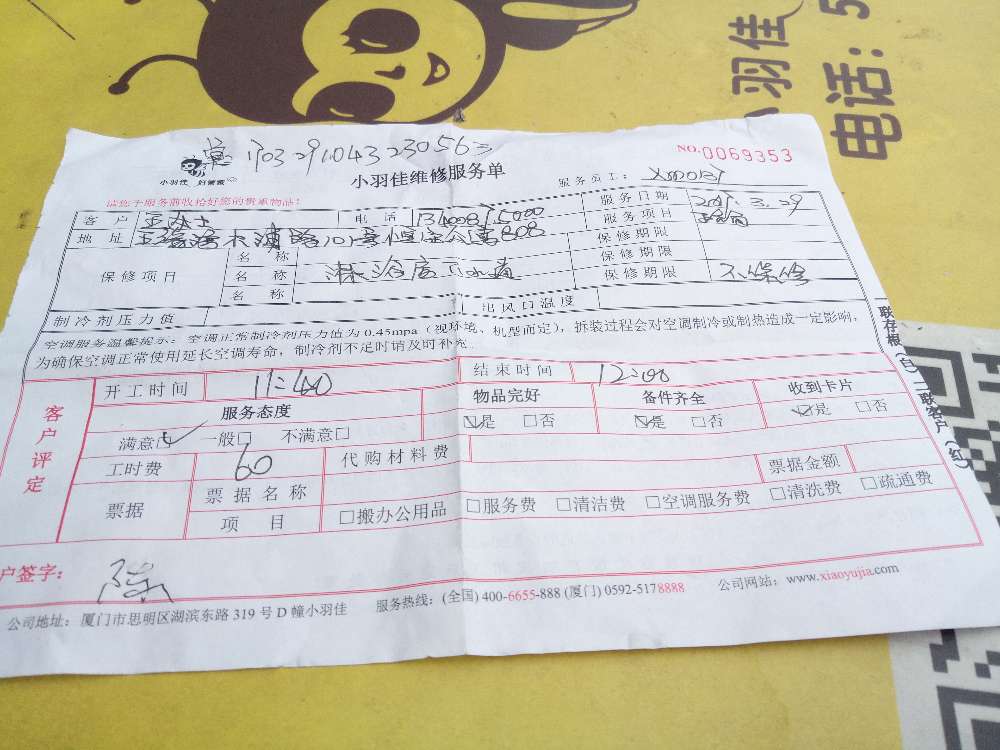 小羽佳
电话：5
170329104323056
NO.0069353
小羽佳 好管家
小羽佳维修服务单
服务员工：
请您于服务前收拾好您的贵重物品！
客户 电话 服务日期 3.29
地址 服务项目
保修项目 名称 保修期限
名称 淋浴房 保修期限
名称 保修期限 不保修
制冷剂压力值 出风口温度
空调服务温馨提示：空调正常制冷剂压力值为0.45mpa（视环境、机型而定），拆装过程会对空调制冷或制热造成一定影响，
为确保空调正常使用延长空调寿命，制冷剂不足时请及时补充。
客户评定
开工时间 11:40 结束时间 12:00
服务态度 物品完好 备件齐全 收到卡片
满意☑ 一般□ 不满意□ ☑是 □否 ☑是 □否 ☑是 □否
工时费 60 代购材料费 票据金额
票据 票据名称
项目 □搬办公用品 □服务费 □清洁费 □空调服务费 □清洗费 □疏通费
一联存根（白）二联客户（红）
户签字：
公司地址：厦门市思明区湖滨东路319号D幢小羽佳 服务热线：(全国) 400-6655-888 (厦门) 0592-5178888 公司网站：www.xiaoyujia.com